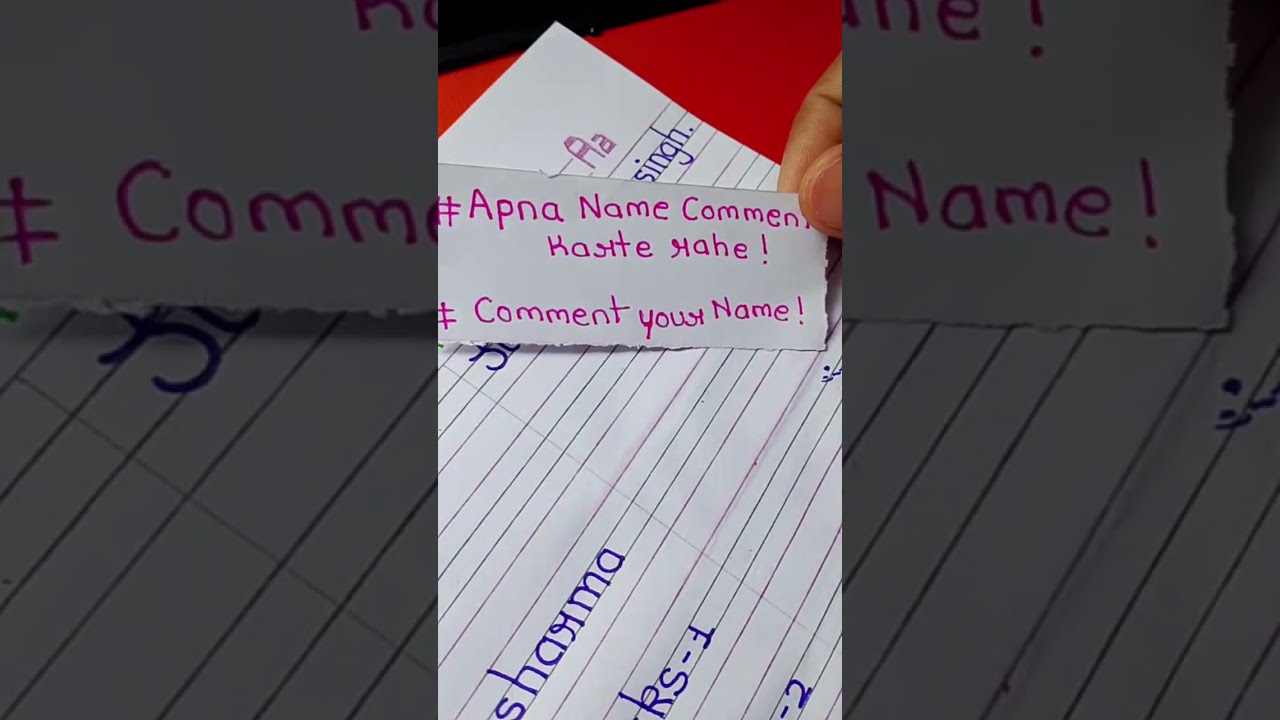 Aa
singh.
#Apna Name Comment
Karte rahe!
# Comment your Name!
sharma
ks-1
-2